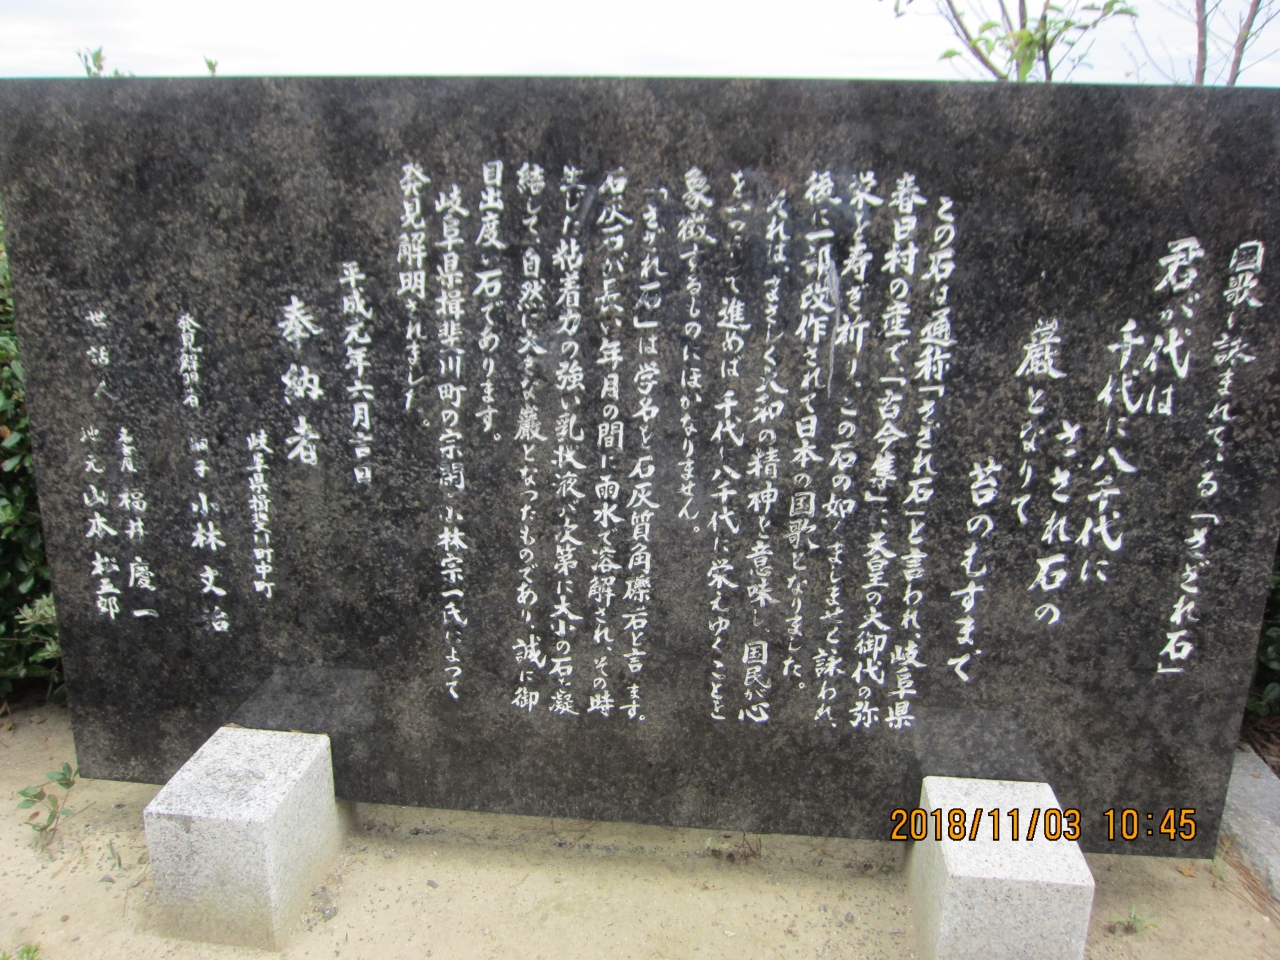 国歌に詠まれている「さざれ石」
君が代は
千代に八千代に
さざれ石の
巌となりて
苔のむすまで
この石は通称「さざれ石」と言われ、岐阜県
春日村の産で、「古今集」に天皇の大御代の弥
栄を寿ぎ祈り、この石の如くましませと詠われ、
後に一部改作されて日本の国歌となりました。
それは、まさしく大和の精神を意味し国民が心
を一つにして進めば千代に八千代に栄えゆくことを
象徴するものにほかなりません。
「さざれ石」は学名を石灰質角礫岩と言います。
石灰石が長い年月の間に雨水で溶解され、その時
生じた粘着力の強い乳状液が次第に大小の石を凝
結して、自然に大きな巌となったものであり、誠に御
目出度い石であります。
岐阜県揖斐川町の宗閑・小林宗一氏によって
発見解明されました。
平成元年六月吉日
奉納者
岐阜県揖斐川町中町
発見解明者
小林文治
世話人
福井慶一
地元山本松五郎